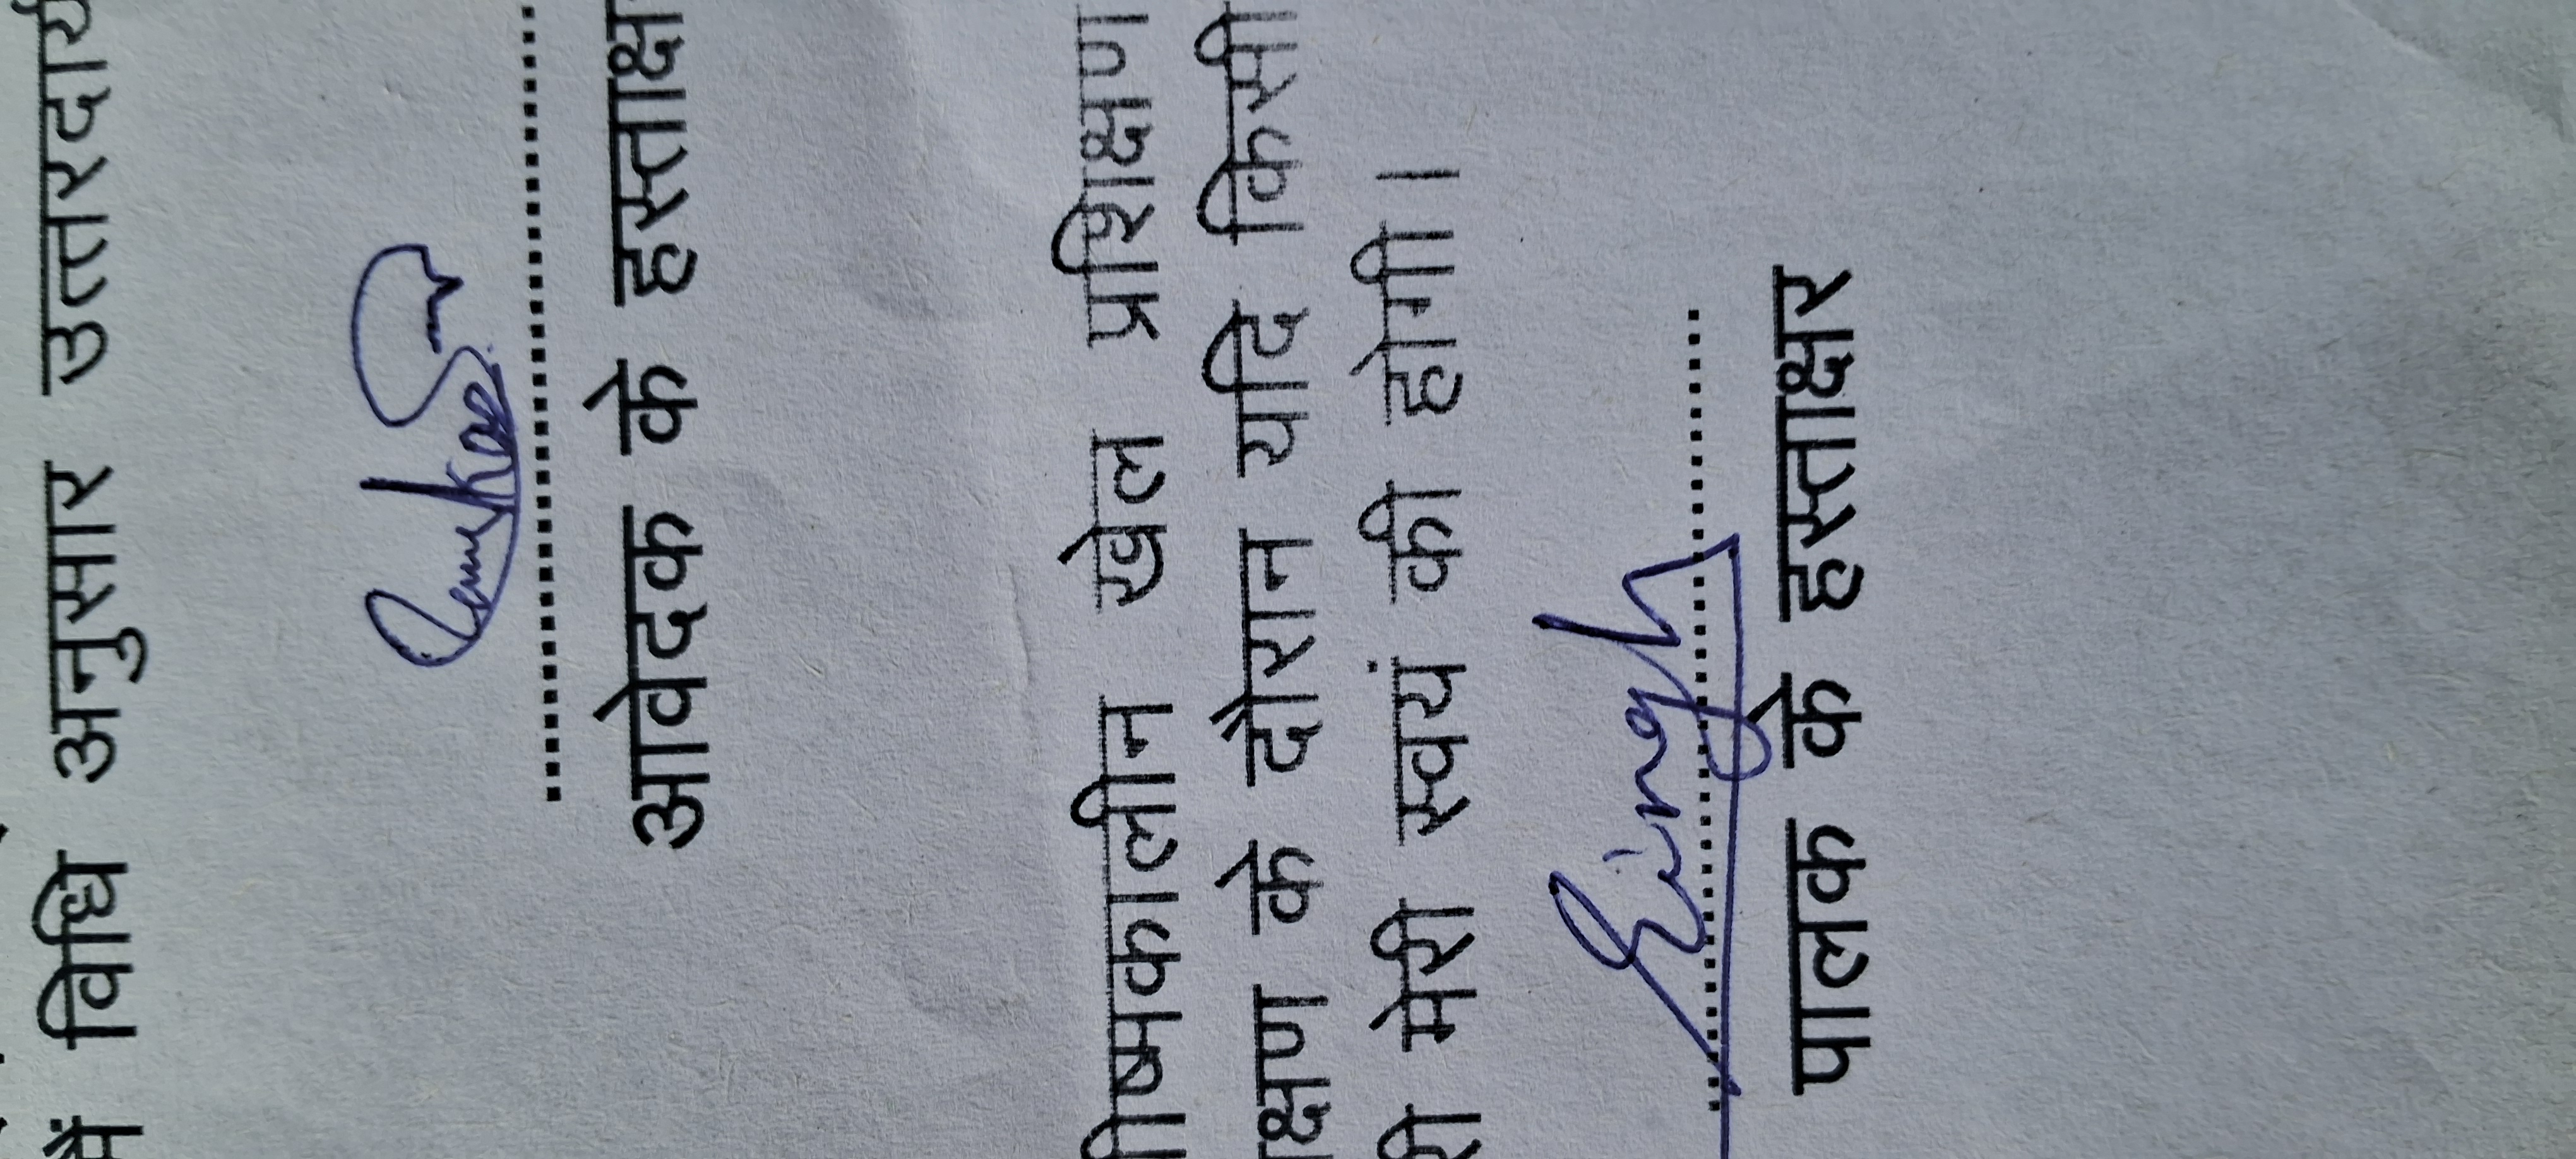 में विधि अनुसार उत्तरदायी
आवेदक के हस्ताक्षर
ग्रीष्मकालीन खेल प्रशिक्षण
क्षण के दौरान यदि किसी
री मेरी स्वयं की होगी।
Singh
पालक के हस्ताक्षर